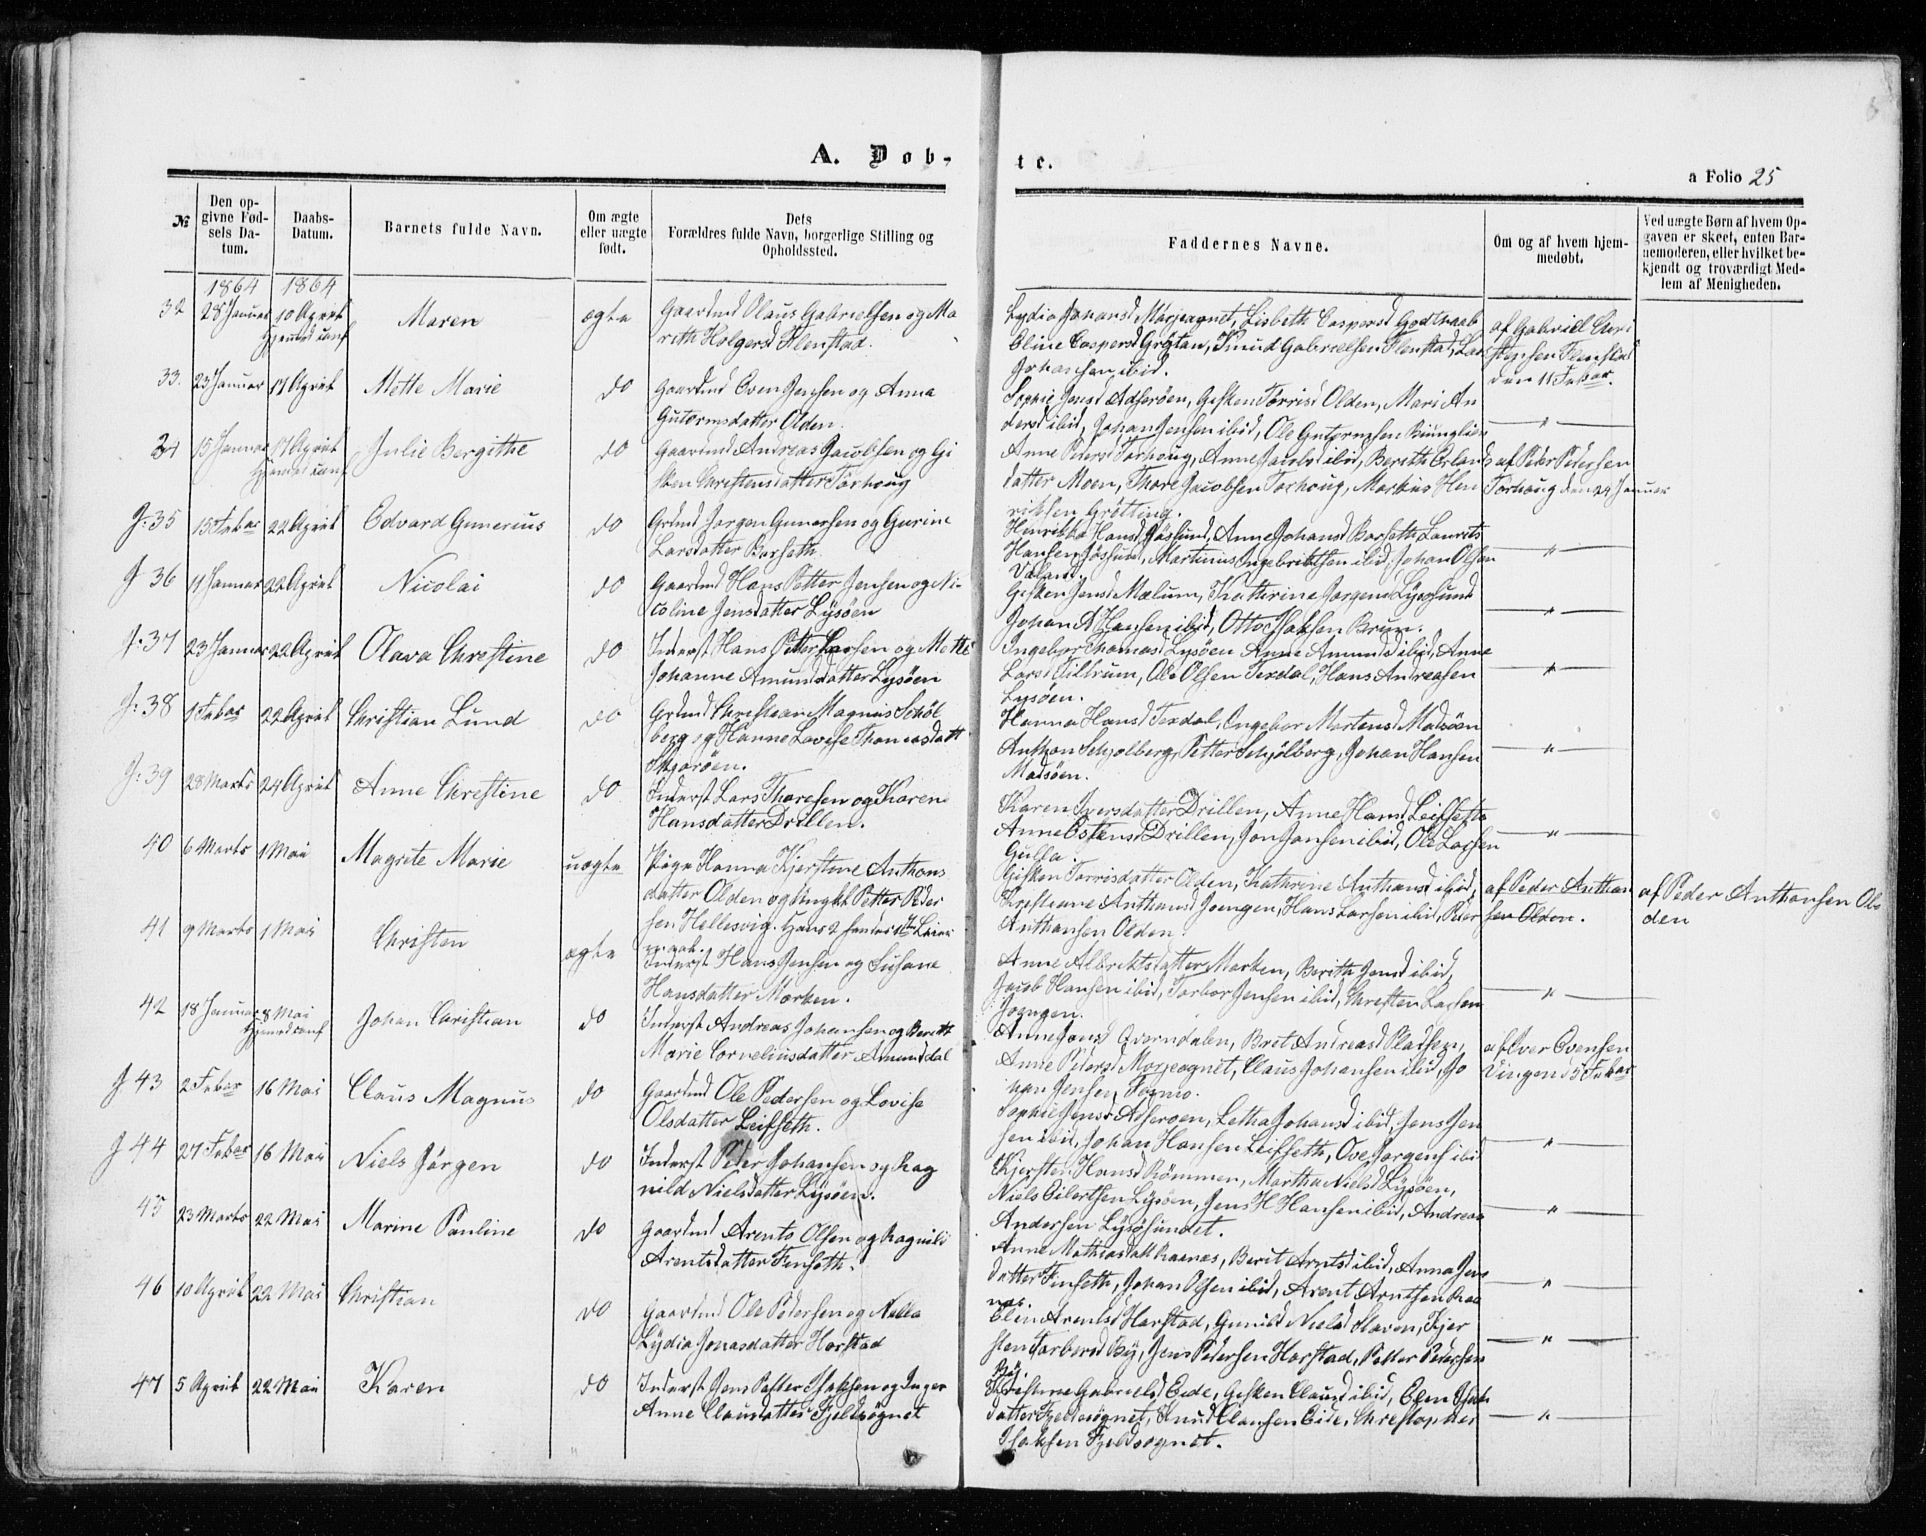 A. Døb-
te.
a Folio 25
№
Den op-
givne Fød-
sels Da-
tum.
Daabs-
Datum.
Barnets fulde Navn.
Om ægte
eller uægte
født.
Dets
Forældres fulde Navn, borgerlige Stilling og
Opholdssted.
Faddernes Navne.
Om og af hvem hjem-
medøbt.
Ved uægte Børn af hvem Op-
gaven er skeet, enten Bar-
nemoderen, eller hvilket be-
kjendt og troværdigt Med-
lem af Menigheden.
1864 1864
32 28 Januar 10 April
Maren
ægte
Gaardmd Olaus Gabrielsen og Ma
reth Holgersd Flenstad.
Lydia Johansd Morjeagnet, Lisbeth Caspersd Godthaab
Eline Caspersd Grøtan, Knud Gabrielsen Flenstad, Lars
Johansen ibid.
af Gabriel Chri
stensen Flenstad
den 11 Febar.
33. 23 Januar 17 April
Mette Marie
do
Gaardmd Even Jensen og Anna
Gutormsdatter Olden.
Sophie Jensd Adserøen, Gesken Torrisd Olden, Mari An
dersd ibid, Johan Jensen ibid, Ole Gutormsen
— " —
34 15 Januar 17 April
Julie Bergithe
do
Gaardmd Andreas Jacobsen og Gi
sken Christensdatter Tørhoug
Anne Peders Tørhoug, Anne Jacobsd ibid, Bereth Erlands
datter Moen, Thore Jacobsen Tørhoug, Markus Hen
riksen Grøtting.
af Peder Pedersen
Tørhoug den 24 Januar
J. 35 13 Febar 22 April
Edvard Gunerius
do
Grdmd Jørgen Gunarsen og Gurine
Larsdatter Borseth.
Henrikka Hansd Jøssund, Anne Johansd Borseth, Laurits
Hansen Jøssund, Martinus Ingebrektsen ibid, Johan Olsen
Valand.
— " —
J 36 11 Januar 22 April
Nicolai
do
Gaardmd Hans Petter Jensen og Ni-
coline Jensdatter Lysøen
Gesken Jensd Mælum, Kathrine Jørgensd Lysøsund
Johan A Hansen ibid, Otto Isaksen Brun.
— " —
J. 37 23 Januar 22 April
Olava Christine
do
Inderst Hans Petter Larsen og Mette
Johanne Amundsdatter Lysøen
Ingebor Thomasd Lysøen Anne Amundsd ibid, Anne
Larsd Tiltrum, Ole Olsen Terdal, Hans Andreasen
Lysøen.
— " —
J. 38 1 Febar 22 April
Christian Lund
do
Grdmd Christian Magnus Schøl
berg og Hanne Lovise Thomasdatt
Skjærøen.
Hanna Hansd Terdal, Ingebor Mortensd Madsøen
Anthon Schjølberg, Petter Schjølberg, Johan Hansen
Madsøen.
— " —
J. 39 28 Marts 24 April
Anne Christine
do
Inderst Lars Thoresen og Karen
Hansdatter Drillen.
Karen Iversdatter Drillen, Anne Hansd Leifseth
Anne Ostensd Drillen, Jon Jonsen ibid, Ole Larsen
Gulla.
— " —
40 6 Marts 1 Mai
Magrete Marie
uægte
Pige Hanna Kjerstine Anthons
datter Olden og Ungkl Petter Peder
sen Hellesvig. Hans & hendes 1ste Leier
maal.
Gisken Torrisdatter Olden, Kathrine Anthonsd ibid,
Kristiane Anthonsd Joengen, Hans Larsen ibid, Peder
Anthonsen Olden.
af Peder Anthon
sen Olden.
af Peder Anthonsen Ol
den
41 9 Marts 1 Mai
Christen
ægte
Inderst Hans Jensen og Susane
Hansdatter Morken.
Anne Albriktsdatter Morken, Berith Jensd ibid,
Jacob Hansen ibid, Torbor Jensen ibid, Christen Larsen
Joengen.
— " —
42 18 Januar 8 Mai
Johan Christian
do
Inderst Andreas Johansen og Berett
Marie Corneliusdatter Amundal
Anne Jonsd Overndalen, Beret Andreasd Pladsen,
Anne Pedersd Morjeagnet, Claus Johansen ibid, Jo
han Jensen Tegmo.
af Iver Evensen
Vingen d 5 Febar
J 43 2 Febar 16 Mai
Claus Magnus
do
Gaardmd Ole Pedersen og Lovise
Olsdatter Leifseth.
Sophie Jensd Adserøen, Letha Johansd ibid, Jens Jen
sen ibid, Johan Hansen Leifseth, Ove Jørgens ibid
— " —
J 44 27 Febar 16 Mai
Niels Jørgen
do
Inderst Peder Johansen og Rag
nild Nielsdatter Lysøen.
Kjersten Hansd Rømmen, Martha Nielsd Lysøen,
Niels Eilertsen Lysøen, Jens H Hansen ibid, Andreas
Andersen Lysøsundet.
— " —
45 23 Marts 22 Mai
Marine Pauline
do
Gaardmd Arents Olsen og Ragnild
Arentsdatter Finseth.
Anne Mathiasdatt Raanes, Berit Arntsd ibid, Anna Jens
datter Finseth, Johan Olsen ibid, Arent Arntsen Raa
nes.
— " —
46 10 April 22 Mai
Christian
do
Gaardmd Ole Pedersen og
Lydia Jonasdatter Harstad
Elen Arentsd Harstad, Gunild Nielsd Haven, Kjer
sten Torbersd By, Jens Pedersen Harstad, Petter Pedersen
By.
— " —
47 5 April 22 Mai
Karen
do
Inderst Jens Petter Isaksen og Inger
Anne Clausdatter Fjeldsøgnet
Kristine Gabrielsd Eide, Gesken Clausd ibid, Elen Isaks
datter Fjeldsøgnet, Knud Clausen Eide, Christopher
Isaksen Fjeldsøgnet.
— " —